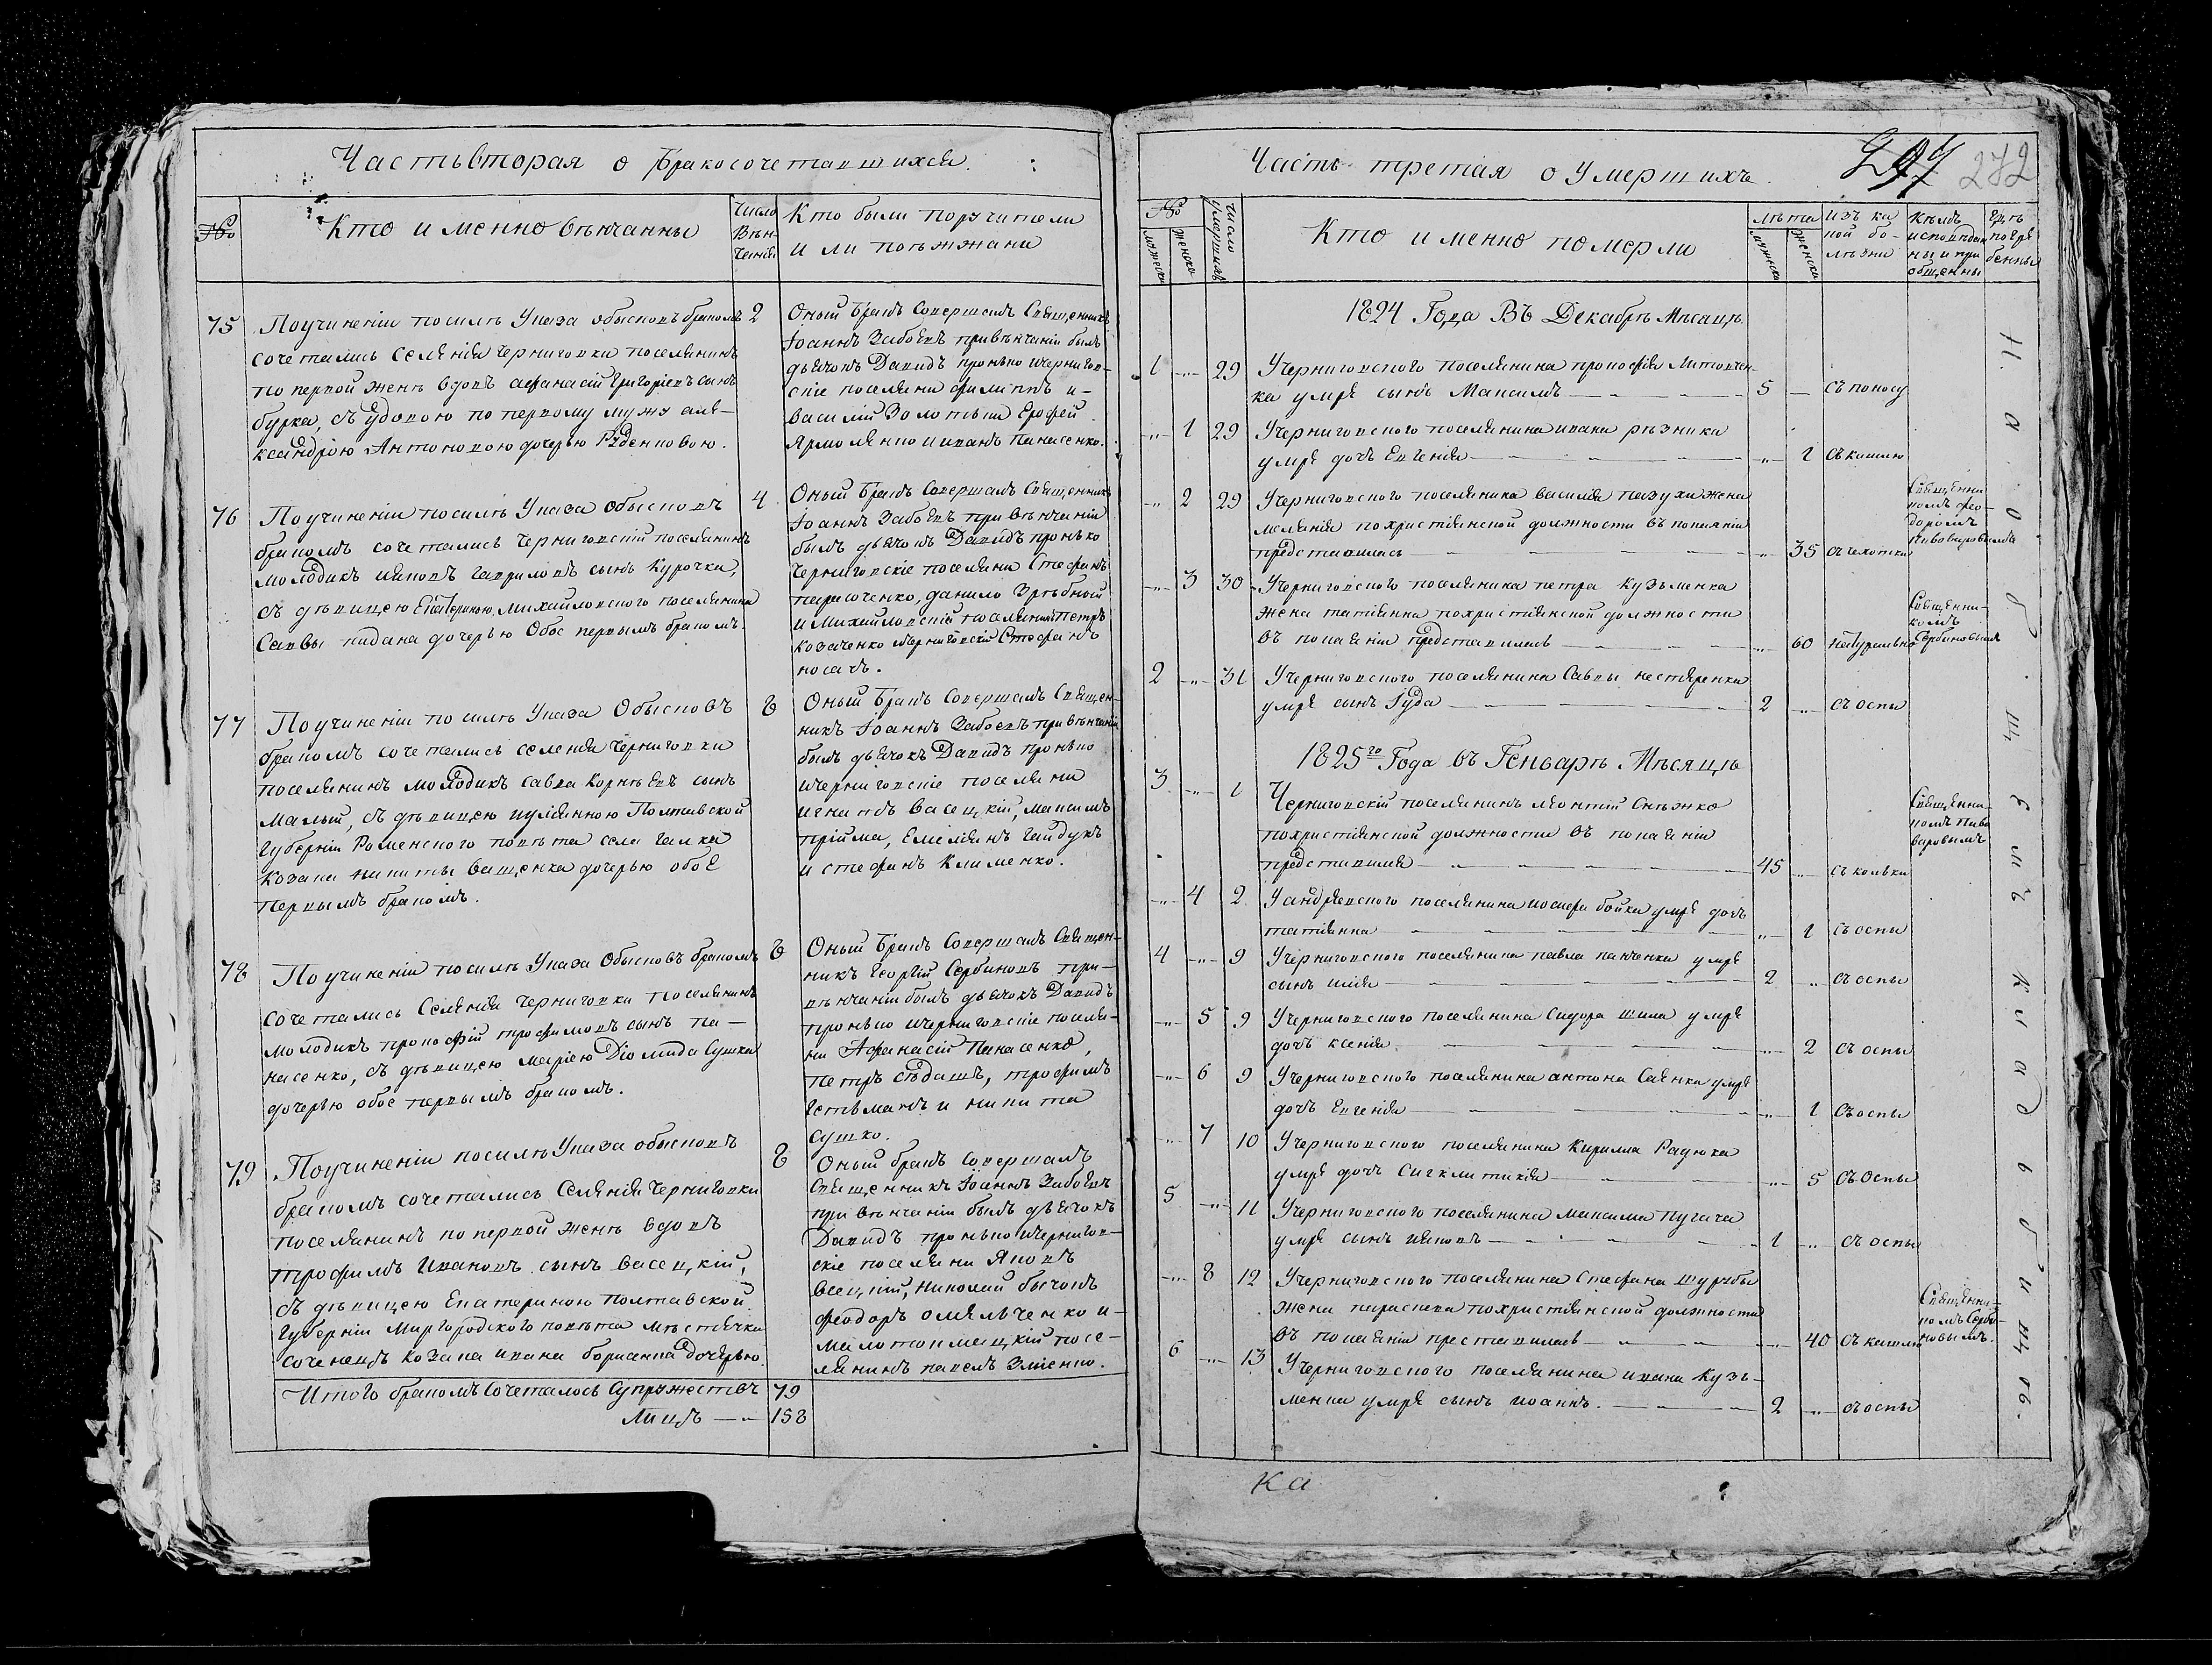 Часть вторая о бракосочетавшихся.
№
Кто именно венчанны
Число
Вѣн-
чанія
Кто были поручители
или поѣжжани
75
Поучиненіи посилѣ Указа обысковъ бракомъ
сочетались Селенія Черниговки поселянинъ
по первой женѣ вдовъ афанасій Григоріевъ сынъ
бурка, съ удовою по первому мужу але-
ксандрою Антоновою дочерью Руденковою.
2
Оный бракъ Совершалъ Священникъ
Іоаннъ Забоевъ привѣнчаніи былъ
дьячокъ Давидъ
скіе поселяни филиппъ и-
василій Золотыи Ерофей
Ярмоленко и иванъ Панасенко.
76
Поучиненіи посилѣ Указа обысковъ
бракомъ сочетались Черниговскій поселянинъ
молодикъ иаковъ гавриловъ сынъ Курочка,
съ дѣвицею Екатериною, михайловскаго поселянина
Саввы дочерью Обое первымъ бракомъ.
4
Оный бракъ Совершалъ Священникъ
Іоаннъ Забоевъ при вѣнчаніи
былъ дьячокъ Давидъ
Черниговскіе поселяни Стефанъ
данило
и Михайловскій поселянинъ Петръ
Козаченко Черниговскій Стефанъ
носачъ.
77
Поучиненіи по силѣ Указа Обысковъ
бракомъ сочетались селенія Черниговки
поселянинъ молодикъ савва Корнѣевъ сынъ
малый, съ дѣвицею иуліанною Полтавской
Губерніи Роменского повѣта села Галка
Козака никиты ващенка дочерью обое
первымъ бракомъ.
8
Оный бракъ Совершалъ Священ-
никъ Іоаннъ Забоевъ при вѣнчаніи
былъ дьячокъ Давидъ
иЧерниговскіе поселяни
игнатъ васецкій, максимъ
прійма, Емеліянъ гайдукъ
и стефанъ Клименко.
78
Поучиненіи посилѣ Указа Обысковъ бракомъ
сочетались Селенія Черниговки поселянинъ
молодикъ прокофій трофимовъ сынъ па-
насенко, съ дѣвицею маріею Діомида Сушка
дочерью обое первымъ бракомъ.
8
Оный бракъ Совершалъ Священ-
никъ Георгій Сербиновъ при-
вѣнчаніи былъ дьячокъ Давидъ
иЧерниговскіе поселя-
ни Афанасій Панасенко,
петръ сѣдашъ, трофимъ
гетьманъ и никита
сушко.
79
Поучиненіи посилѣ Указа обысковъ
бракомъ сочетались Селенія Черниговки
поселянинъ по первой женѣ вдовъ
трофимъ Ивановъ сынъ васецкій,
съ дѣвицею Екатериною полтавской
Губерніи Миргородского повѣта мѣстечка
соченецъ козака ивана борисенка дочерью.
8
Оный бракъ Совершалъ
Священникъ Іоаннъ Забоевъ
при вѣнчаніи былъ дьячокъ
Давидъ иЧернигов-
скіе поселяни Яковъ
Николай бычокъ
феодоръ омельченко и-
малотокмацкій посе-
лянинъ павелъ Зліенко.
Итого бракомъ Сочеталось Супружествъ 79
Лицъ — „ 158
Часть третая о Умершихъ.
297 272
№
мужески
женски
число умершихъ
Кто именно померли
лѣта
мужски
женски
изъ ка
кой бо-
лѣзни
Кѣмъ
исповѣдан
ны и при
общенны
Гдѣ
погре
бенны
1824 Года Въ Декабрѣ Мѣсяцѣ.
1 „ 29 Учерниговского поселянина прокофія Литовчен-
ка умре сынъ Максимъ 5 — съ поносу
„ 1 29 Учерниговского поселянина ивана рѣзника
умре дочь Евгенія „ 1 съ кашлю
„ 2 29 Учерниговского поселянина василія пазухи жена
меланія похристіянской должности въ покаяніи
представилась „ 35 съ чехотки
Священни
комъ фео-
доромъ
Пивоваровымъ
„ 3 30 Учерниговского поселянина петра Кузьменка
жена татіянна похристіянской должности
въ покаяніи представилась „ 60 натурально
Священни-
комъ
Сербиновымъ
2 „ 31 Учерниговского поселянина Савы нестеренка
умре сынъ Іуда 2 „ съ оспы
1825го Года въ Геньварѣ Мѣсяцѣ
3 „ 1 Черниговскій поселянинъ леонтій Снѣжко
похристіянской должности въ покаяніи
представился 45 „ съ кольки
Священни-
комъ Пиво
варовымъ
„ 4 2 Уандреевского поселянина иосифа бойка умре дочь
татіянна „ 1 съ оспы
4 „ 9 Учерниговского поселянина павла панченка умре
сынъ илія 2 „ съ оспы
„ 5 9 Учерниговского поселянина Сидора шила умре
дочь ксенія „ 2 съ оспы
„ 6 9 Учерниговского поселянина антона Саенка умре
дочь Евгенія „ 1 съ оспы
„ 7 10 Учерниговского поселянина Кирилла Радюка
умре дочь Сигклитикія „ 5 съ оспы
5 „ 11 Учерниговского поселянина максима пугача
умре сынъ иаковъ 1 „ съ оспы
„ 8 12 Учерниговского поселянина Стефана шурубы
жена параскева похристіянской должности
въ покаяніи преставилась „ 40 съ кашлю
Священни-
комъ Серби-
новымъ.
6 „ 13 Учерниговского поселянина ивана Кузь-
менка умре сынъ иоаннъ. 2 „ съ оспы
На общемъ кладьбищѣ.
ка